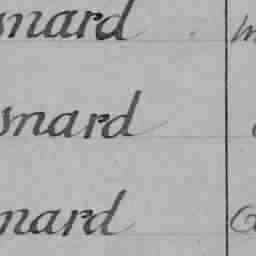 snard
snard
nard